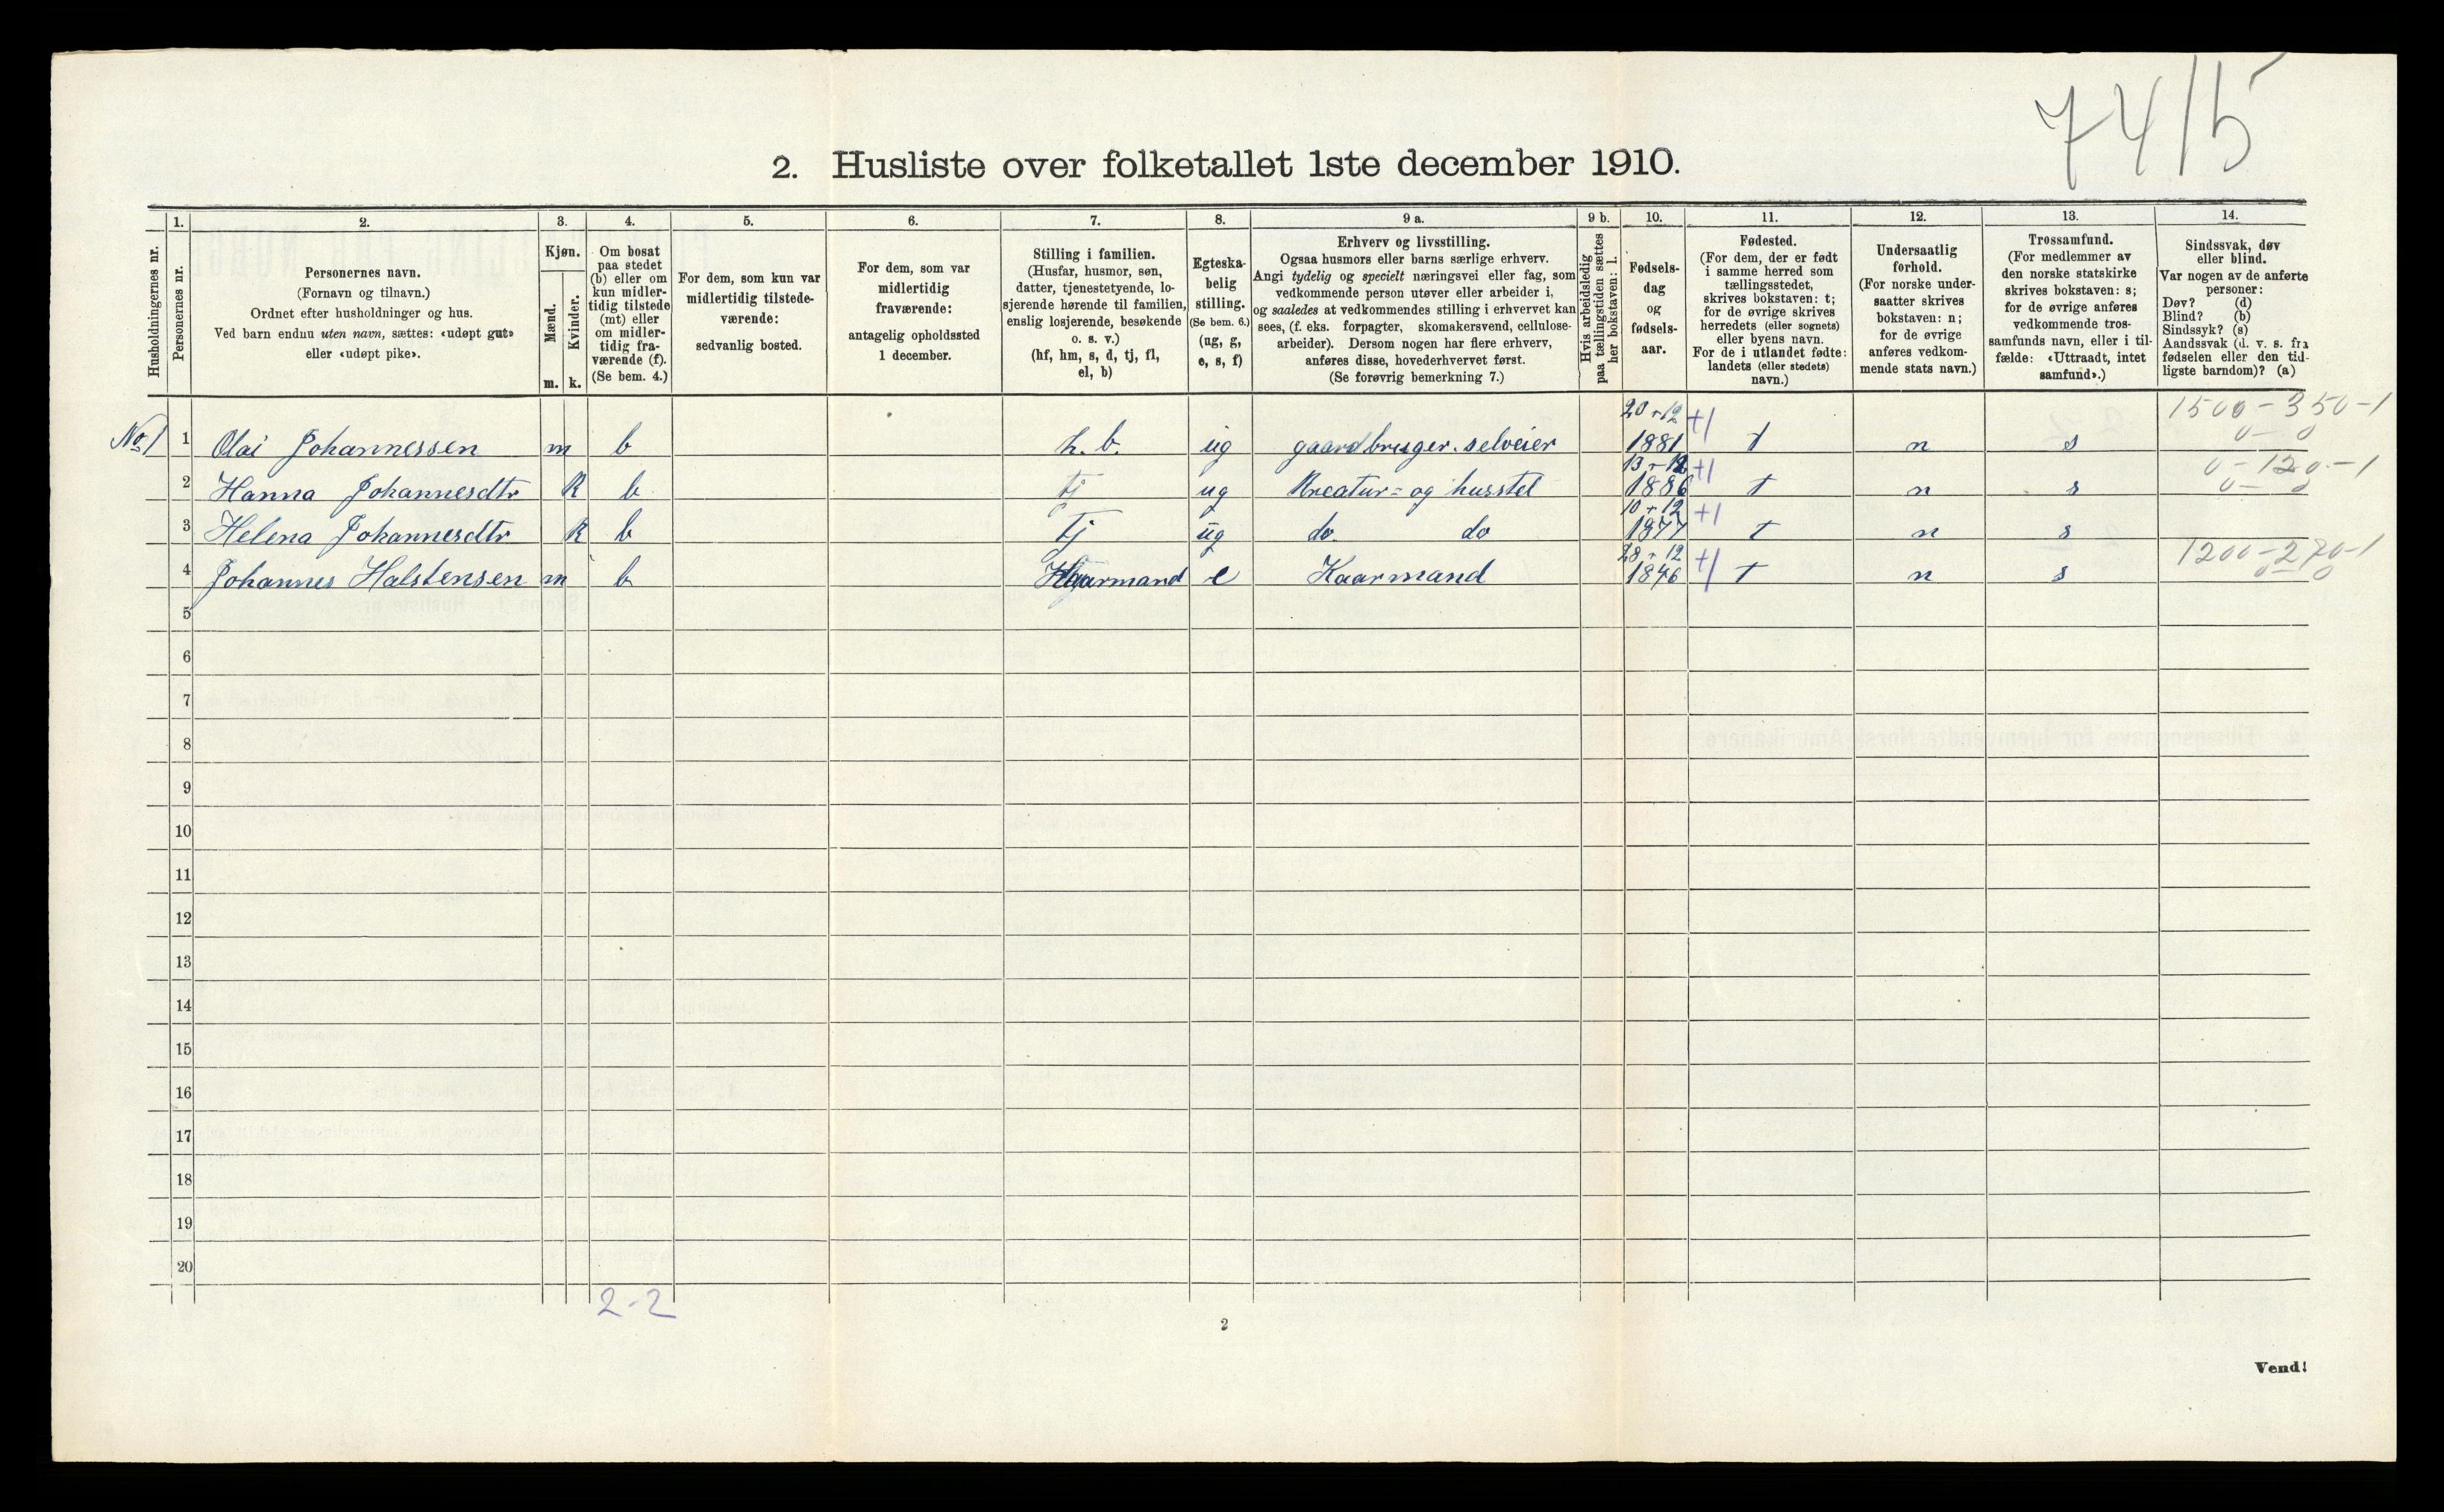 74/5
2. Husliste over folketallet 1ste december 1910.
Husholdningernes nr.
1.
Personernes nr.
2.
Personernes navn.
(Fornavn og tilnavn.)
Ordnet efter husholdninger og hus.
Ved barn endnu uten navn, sættes: «udøpt gut»
eller «udøpt pike».
3.
Kjøn.
Mænd.
Kvinder.
m. k.
4.
Om bosat
paa stedet
(b) eller om
kun midler-
tidig tilstede
(mt) eller
om midler-
tidig fra-
værende (f).
(Se bem. 4.)
5.
For dem, som kun var
midlertidig tilstede-
værende:
sedvanlig bosted.
6.
For dem, som var
midlertidig
fraværende:
antagelig opholdssted
1 december.
7.
Stilling i familien.
(Husfar, husmor, søn,
datter, tjenestetyende, lo-
sjerende hørende til familien,
enslig losjerende, besøkende
o. s. v.)
(hf, hm, s, d, tj, fl,
el, b)
8.
Egteska-
belig
stilling.
(Se bem. 6.)
(ug, g,
e, s, f)
9 a.
Erhverv og livsstilling.
Ogsaa husmors eller barns særlige erhverv.
Angi tydelig og specielt næringsvei eller fag, som
vedkommende person utøver eller arbeider i,
og saaledes at vedkommendes stilling i erhvervet kan
sees, (f. eks. forpagter, skomakersvend, cellulose-
arbeider). Dersom nogen har flere erhverv,
anføres disse, hovederhvervet først.
(Se forøvrig bemerkning 7.)
9 b.
Hvis arbeidsledig
paa tællingstiden sættes
her bokstaven: l.
10.
Fødsels-
dag
og
fødsels-
aar.
11.
Fødested.
(For dem, der er født
i samme herred som
tællingsstedet,
skrives bokstaven: t;
for de øvrige skrives
herredets (eller sognets)
eller byens navn.
For de i utlandet fødte:
landets (eller stedets)
navn.)
12.
Undersaatlig
forhold.
(For norske under-
saatter skrives
bokstaven: n;
for de øvrige
anføres vedkom-
mende stats navn.)
13.
Trossamfund.
(For medlemmer av
den norske statskirke
skrives bokstaven: s;
for de øvrige anføres
vedkommende tros-
samfunds navn, eller i til-
fælde: «Uttraadt, intet
samfund».)
14.
Sindssvak, døv
eller blind.
Var nogen av de anførte
personer:
Døv? (d)
Blind? (b)
Sindssyk? (s)
Aandssvak (d. v. s. fra
fødselen eller den tid-
ligste barndom)? (a)
1500-350-1
0-0
No 1 1 Olai Johannessen m b h.b. ug gaardbruger. selveier 20-12 1881 +1 t n s
0-120-1
0-0
2 Hanna Johannesdtr k b tj ug Kreatur= og husstel 13-12 1886 +1 t n s
3 Helena Johannesdtr k b tj ug do do 10-12 1877 +1 t n s
1200-270-1
0-0
4 Johannes Halstensen m b Kaarmand e Kaarmand 28-12 1846 +1 t n s
5
6
7
8
9
10
11
12
13
14
15
16
17
18
19
20
2-2
2
Vend!